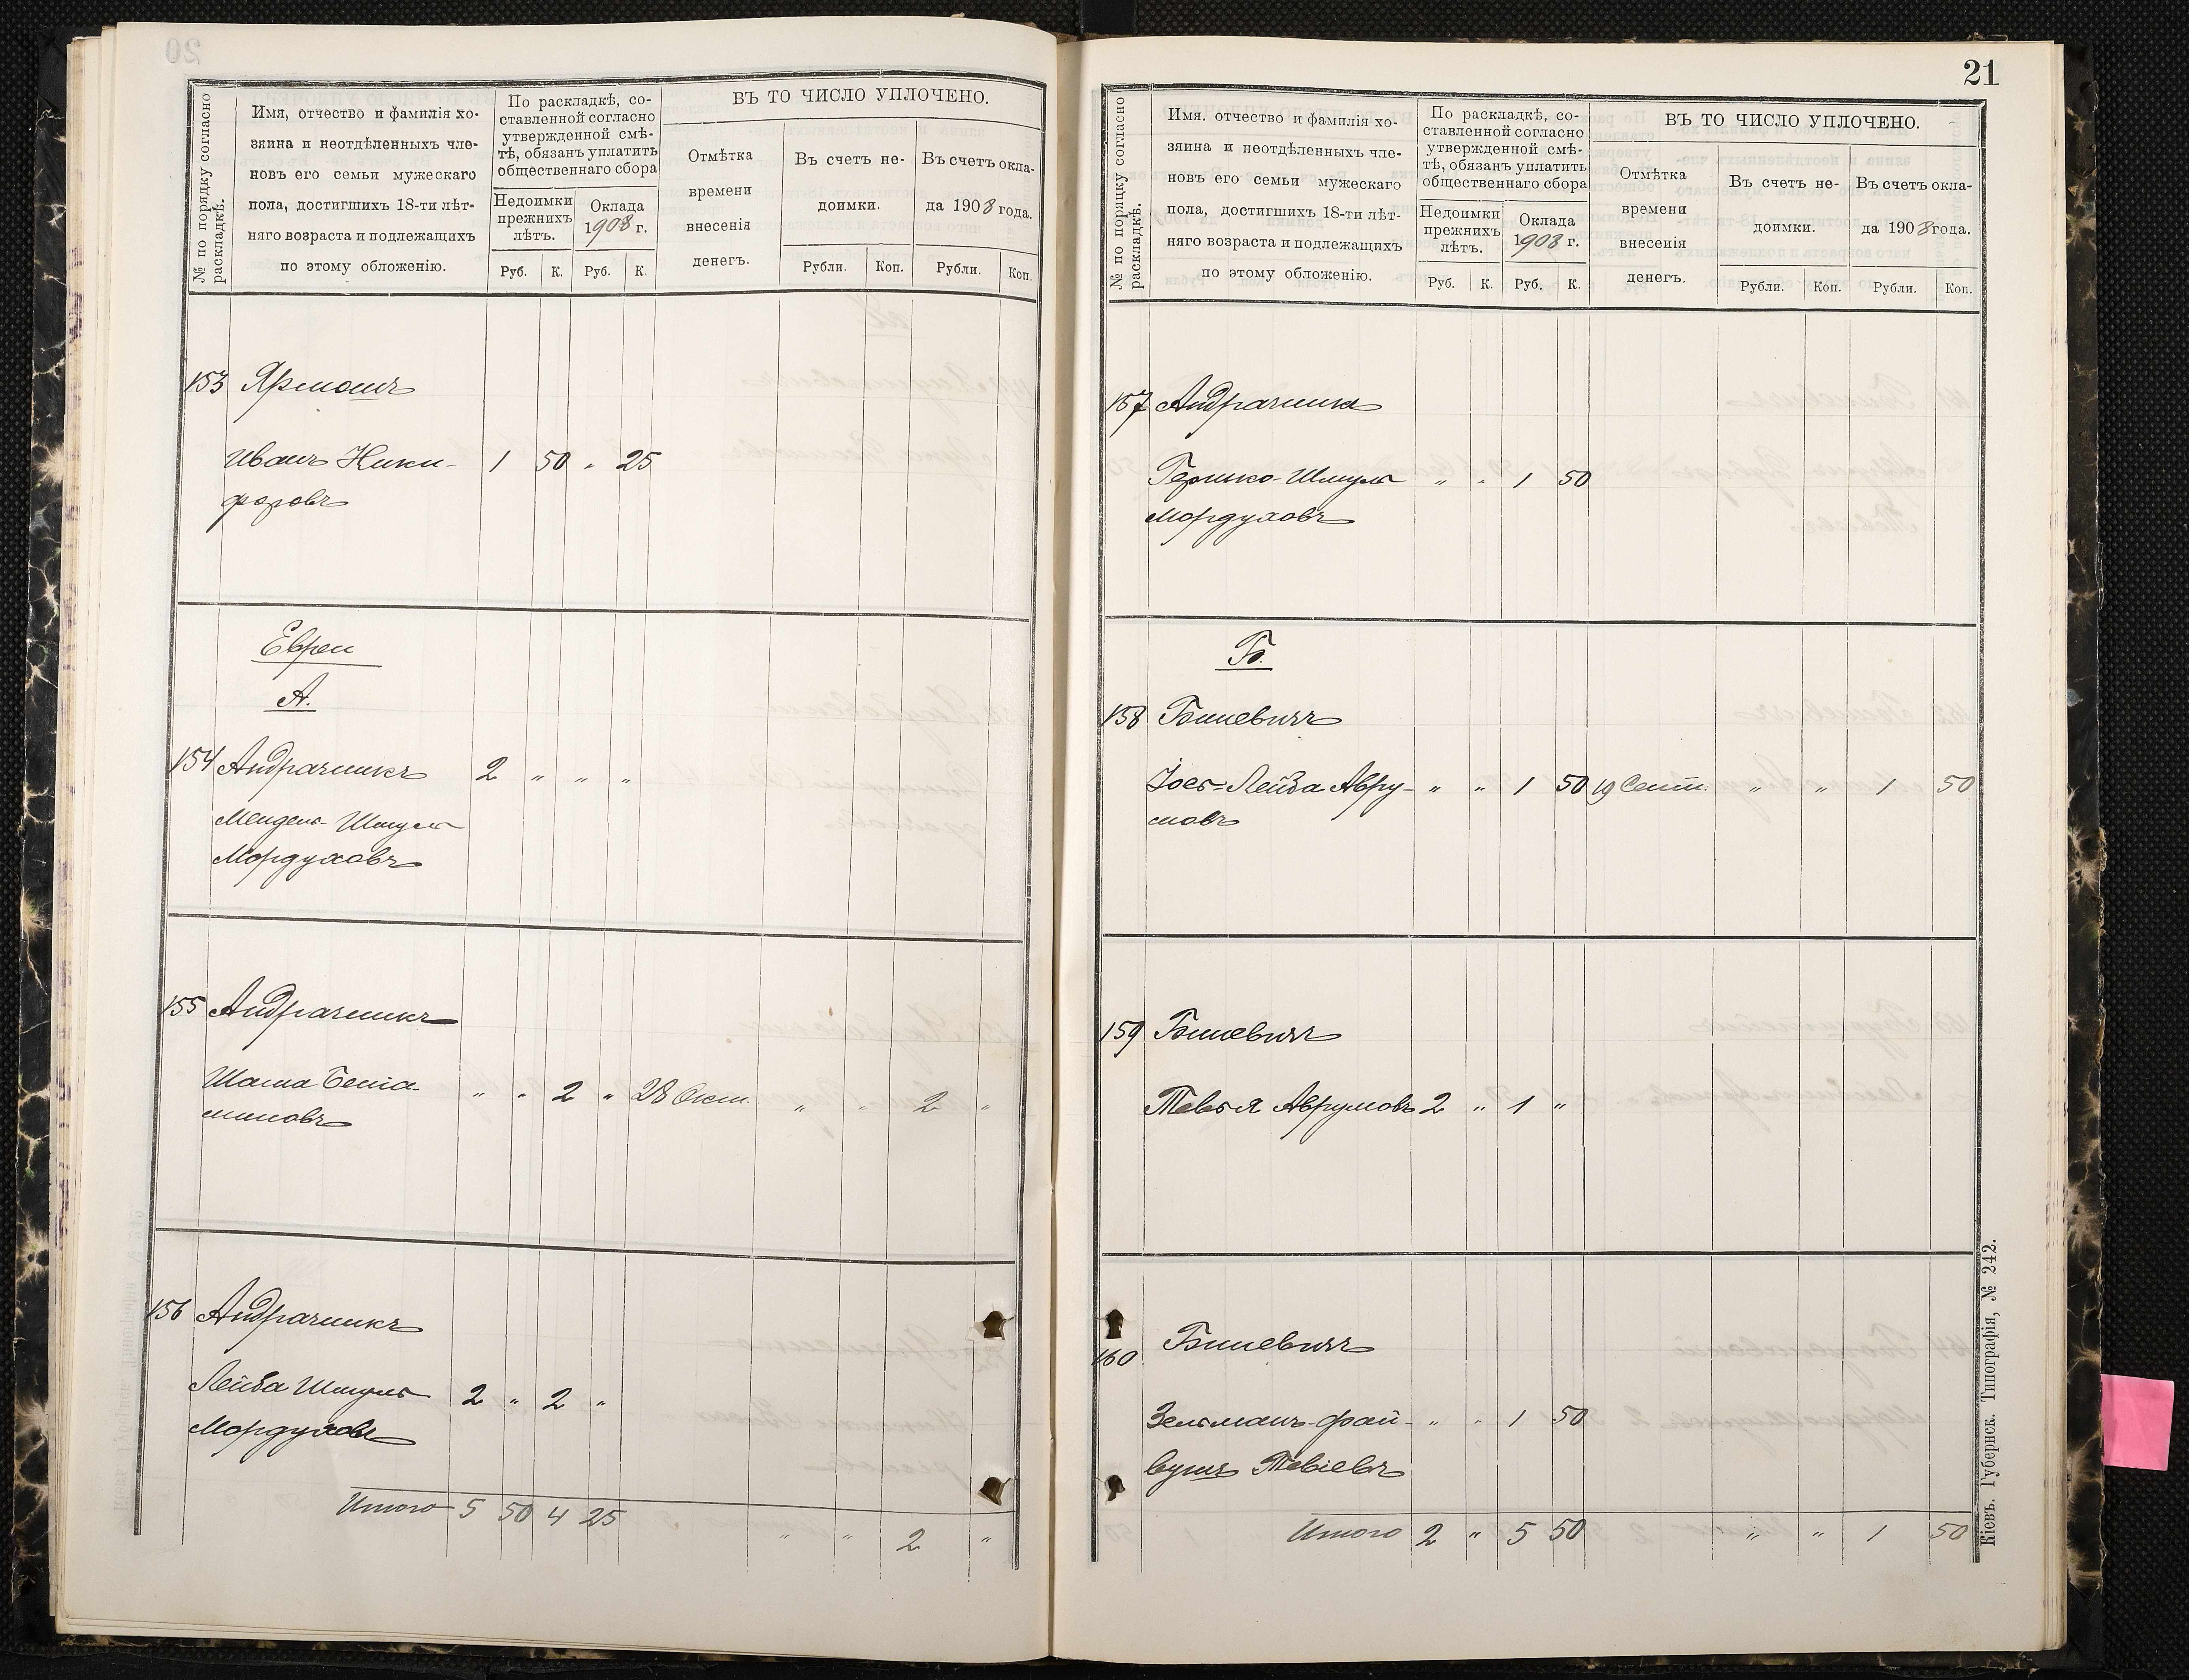 № по порядку согласно раскладкѣ.
Имя, отчество и фамилія хо-
зяина и неотдѣленныхъ чле-
новъ его семьи мужескаго
пола, достигшихъ 18-ти лѣт-
няго возраста и подлежащихъ
по этому обложенію.
По раскладкѣ, со-
ставленной согласно
утвержденной смѣ-
тѣ, обязанъ уплатить
общественнаго сбора
Недоимки
прежнихъ
лѣтъ.
Оклада
1908 г.
Руб. К. Руб. К.
ВЪ ТО ЧИСЛО УПЛОЧЕНО.
Отмѣтка
времени
внесенія
денегъ.
Въ счетъ не-
доимки.
Рубли. Коп.
Въ счетъ окла-
да 1908 года.
Рубли. Коп.
153 Ярмошъ
Иванъ Ники- 1 50 " 25
форовъ
Евреи
А.
154 Андрачникъ 2 " " "
Мендель-Шмуль
Мордуховъ
155 Андрачникъ
Шама Бенiа- " " 2 " 28 Окт. " " 2 "
миновъ
156 Андрачникъ
Лейба Шмуль 2 " 2 "
Мордуховъ
Итого 5 50 4 25 " " 2 "
21
№ по порядку согласно раскладкѣ.
Имя, отчество и фамилія хо-
зяина и неотдѣленныхъ чле-
новъ его семьи мужескаго
пола, достигшихъ 18-ти лѣт-
няго возраста и подлежащихъ
по этому обложенію.
По раскладкѣ, со-
ставленной согласно
утвержденной смѣ-
тѣ, обязанъ уплатить
общественнаго сбора
Недоимки
прежнихъ
лѣтъ.
Оклада
1908 г.
Руб. К. Руб. К.
ВЪ ТО ЧИСЛО УПЛОЧЕНО.
Отмѣтка
времени
внесенія
денегъ.
Въ счетъ не-
доимки.
Рубли. Коп.
Въ счетъ окла-
да 1908 года.
Рубли. Коп.
157 Андрачника
Гершко-Шмуль " " 1 50
Мордуховъ
Б.
158 Биневичъ
Іось-Лейба Авру- " " 1 50 19 Сент. " " 1 50
мовъ
159 Биневичъ
Тевья Аврумовъ 2 " 1 "
160 Биневичъ
Зельманъ-фай- " " 1 50
вушъ Тевіевъ
Итого 2 " 5 50 " " 1 50
Кіевъ. Губернск. Типографія, № 242.